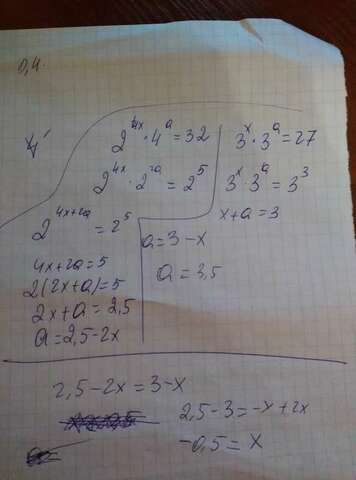 0,4.
4
2^{4x} · 4^a = 32
2^{4x} · 2^{2a} = 2^5
2^{4x+2a} = 2^5
4x+2a = 5
2(2x+a) = 5
2x+a = 2,5
a = 2,5-2x
3^x · 3^a = 27
3^x · 3^a = 3^3
x+a = 3
a = 3-x
a = 3,5
2,5-2x = 3-x
2,5-3 = -x+2x
-0,5 = x